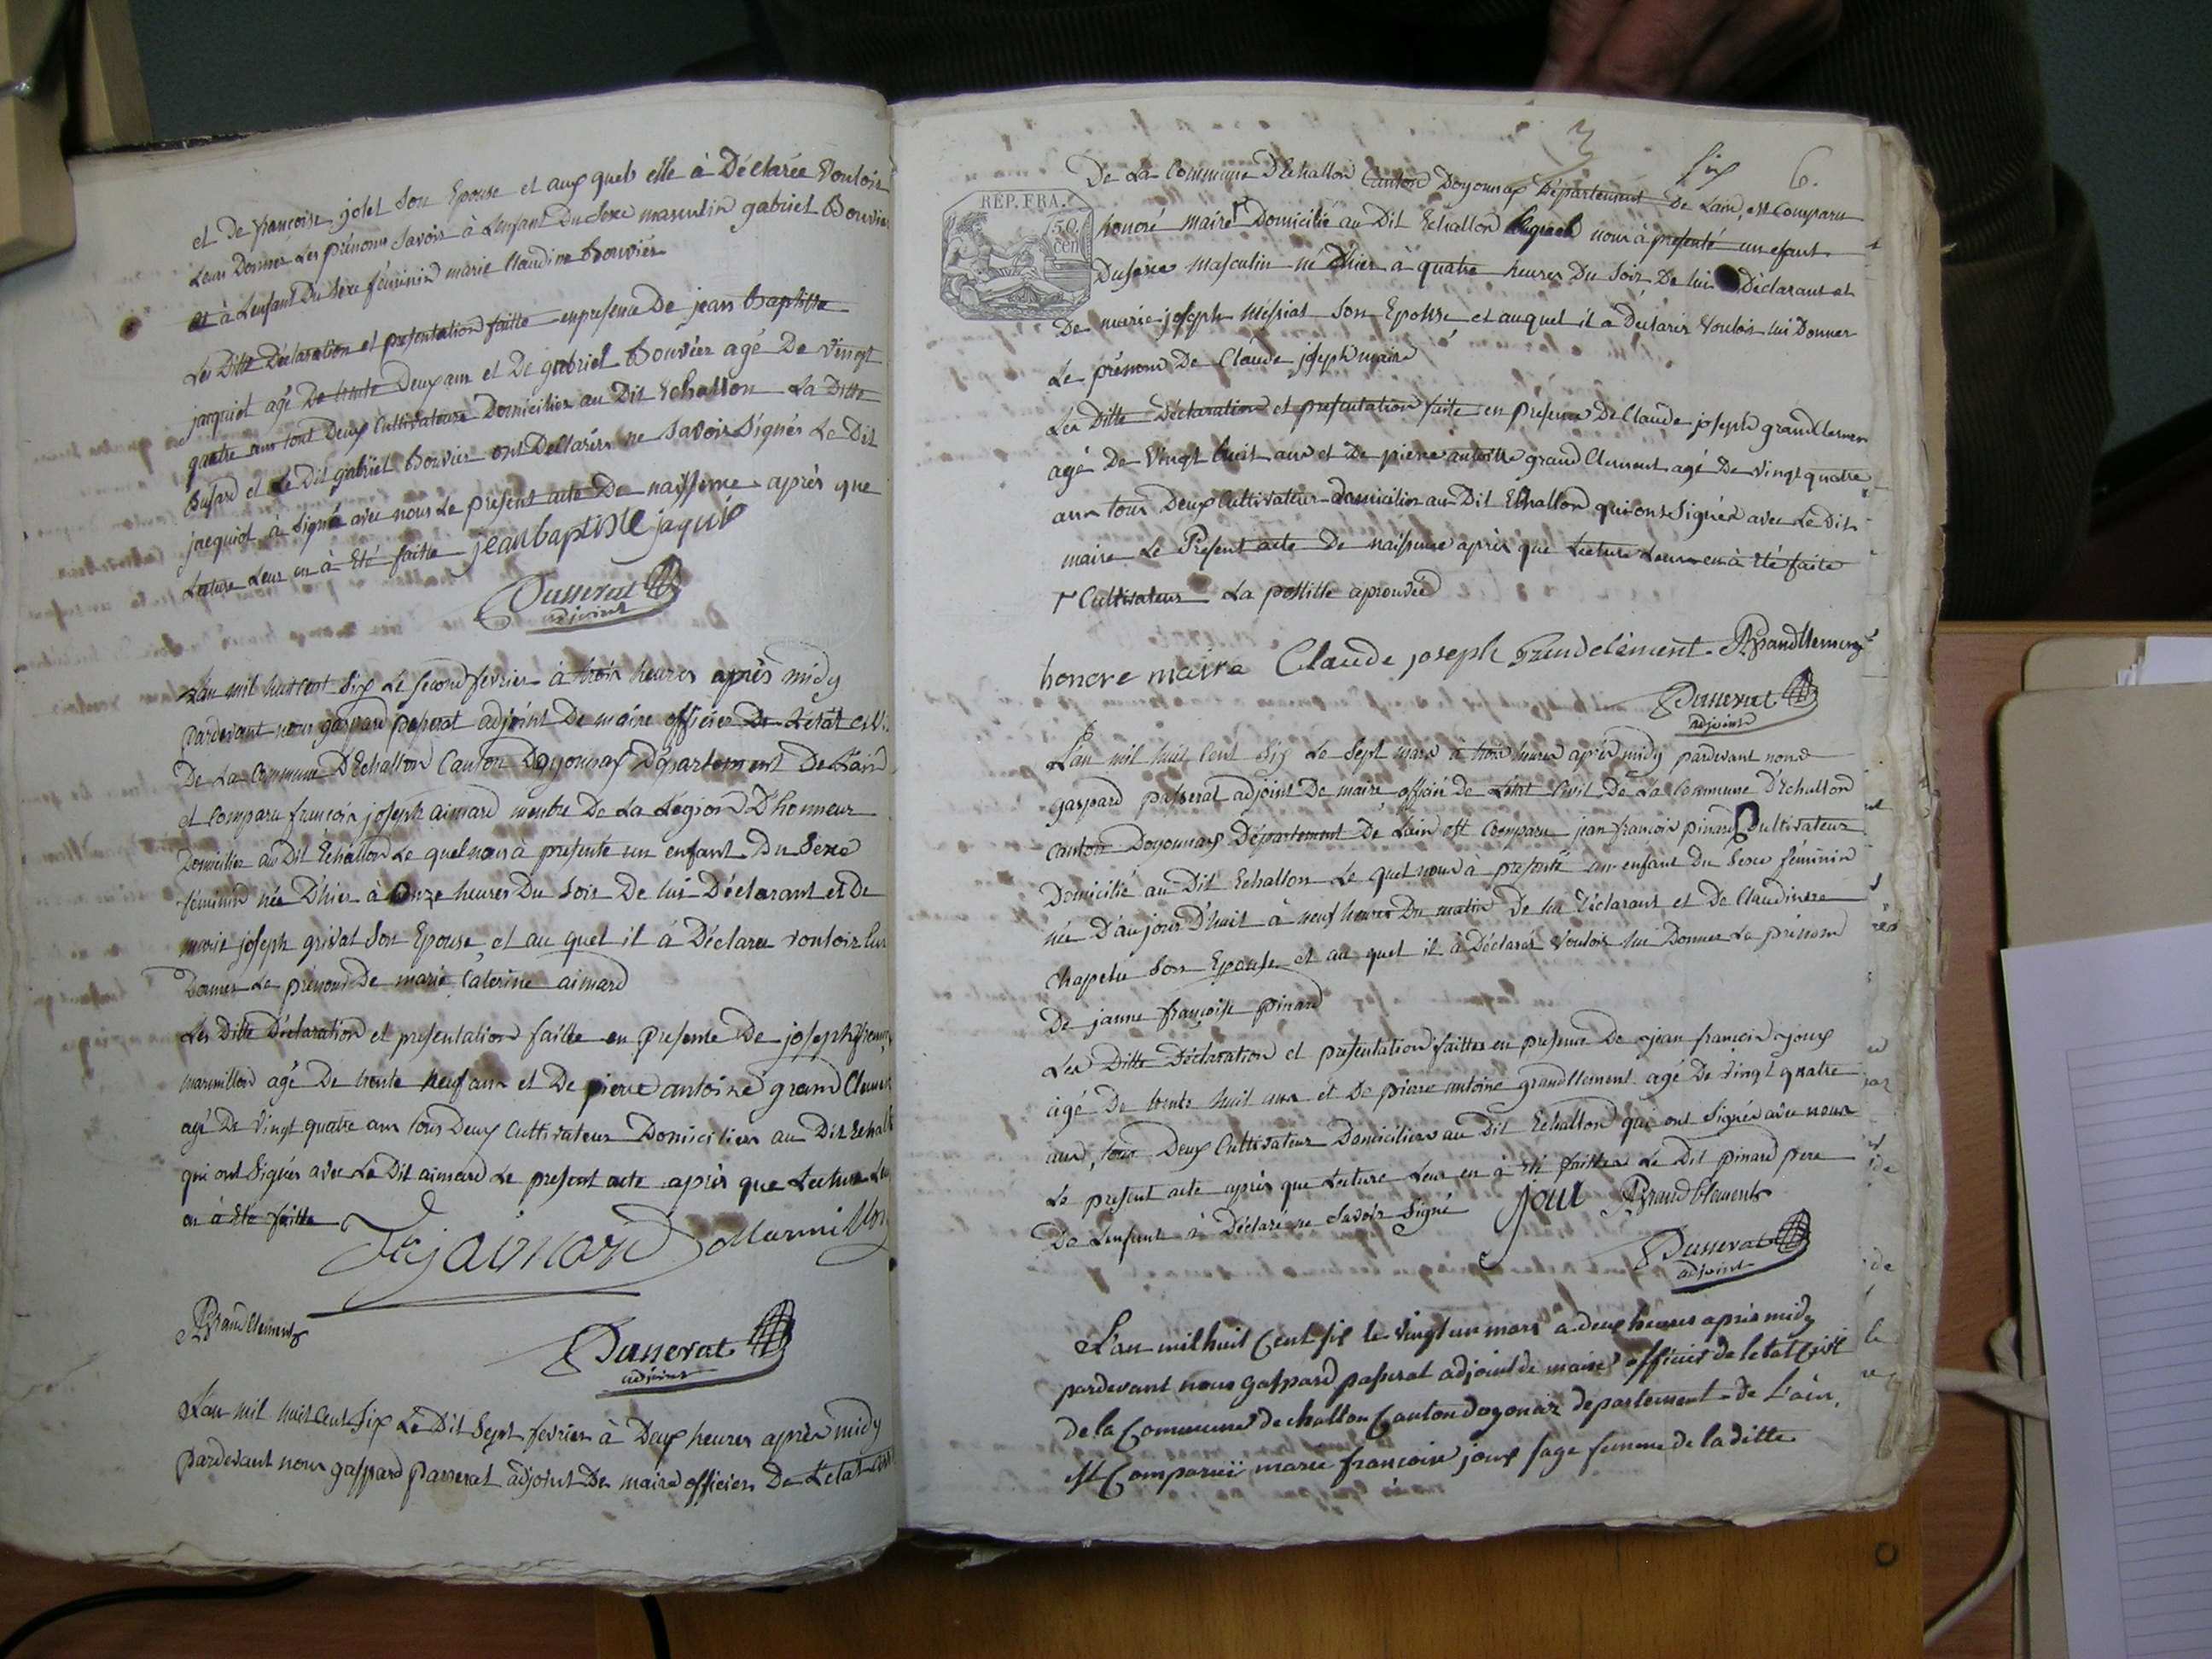 et De françoise jolet Son Epouse et aux quels elle à Déclarée Vouloir
Leurs Donner Les prénoms Savoir à Lenfant Du Sexe masculin gabriel Bouvier
et à Lenfant Du Sexe féminin marie Claudine Bouvier
Les Ditte Déclaration et presentation faitte en presence De jean Baptiste
jacquiot agé De trente Deux ans et De gabriel Bouvier agé De vingt
quatre ans tout Deux Cultivateurs Domiciliés au Dit Echallon La Ditte
et Le Dit gabriel Bouvier ont Déclarés ne Savoir Signés Le Dit
jacquiot à Signé avec nous Le present acte De naissence après que
Lecture Leur en à Eté faitte jean baptiste jaquio
Passerat
adjoint
Lan mil huit cent Six Le Second fevrier à trois heures après midy
pardevant nous gaspard passerat adjoint De maire officier De Létat civ..
De La Commune DEchallon Canton Doyonnax Département De Lain
et Comparu françois joseph aimard membre De La Légion D'honneur
Domicilier au Dit Echallon Le quel nous à presenté un enfant Du Sexe
féminin née D'hier à onze heures Du Soir De lui Déclarant et De
marie joseph grivat Son Epouse, et au quel il à Déclaré vouloir lui
Donner Le prenom De marie Caterine aimard
Les Ditte Déclaration et presentation faitte en presence De joseph
marmillon agé De trente neuf ans et De pierre antoine grand Clement
agé De Vingt quatre ans tous Deux Cultivateurs Domiciliers au Dit Echall
qui ont Signés avec Le Dit aimard Le present acte après que Lecture Leu
en à Eté faitte
aimard Marmillon
PGrandClement
Passerat
adjoint
Lan mil huit Cent Six Le Dit Sept fevrier à Deux heures après midy
pardevant nous gaspard passerat adjoint De maire officier De Létat civi
3 Six 6.
De La Commune DEchallon Canton Doyonnax Département De Lain, est Comparu
REP. FRA.
50.
cen
honoré maire Domicilié au Dit Echallon Lequel nous à presenté un efant
Du sexe masculin né D'hier à quatre heures Du Soir De lui Déclarant et
De marie joseph Méssiat Son Epouse et auquel il a Déclarés Vouloir lui Donner
Le prénom De Claude joseph maire
Les Ditte Déclaration et presentation faite en presence De Claude joseph grandClemen
agé De Vingt huit ans et De pierre antoine grand Clement agé De vingt quatre
ans tous Deux Cultivateur domicilier au Dit Echallon qui ont Signés avec Le Dit
maire Le Present acte De naissance après que Lecture Leur en à Eté faite
Cultivateur La postille aprouvée
honore maire Claude joseph Grandclement PGrandClement
Passerat
adjoint
L'an mil huit Cent Six Le Sept mars à trois heures après midy pardevant nous
gaspard passerat adjoint De maire officié De Létat Civil De La Commune D'Echallon
canton Doyonnax Département De Lain est Comparu jean françois pinard Cultivateur
Domicilié au Dit Echallon Le quel nous à presenté un enfant Du Sexe féminin
née D'aujourd'huit à neuf heures Du matin De lui Déclarant et De Claudine
Chapelu Son Epouse et au quel il à Déclarés Vouloir lui Donner Le prénom
De janne françoise pinard
Les Ditte Déclaration et presentation faittes en presence De jean françois joux
agé De trente huit ans et De pierre antoine grandClement agé De Vingt quatre
ans, tous Deux Cultivateur Domiciliers au Dit Echallon qui ont Signés avec nous
Le present acte après que Lecture Leur en à Eté faitte Le Dit pinard pere
De Lenfant à Déclaré ne Savoir Signé joux PGrandClement
Passerat
adjoint
L'an mil huit Cent Six le Vingt un mars a deux heures après midy
pardevant nous gaspard passerat adjoint de maire officier de letat Civil
de la Commune dechallon Canton doyonax departement de L'ain,
est Comparuë marie françoise joux sage femme de la ditte